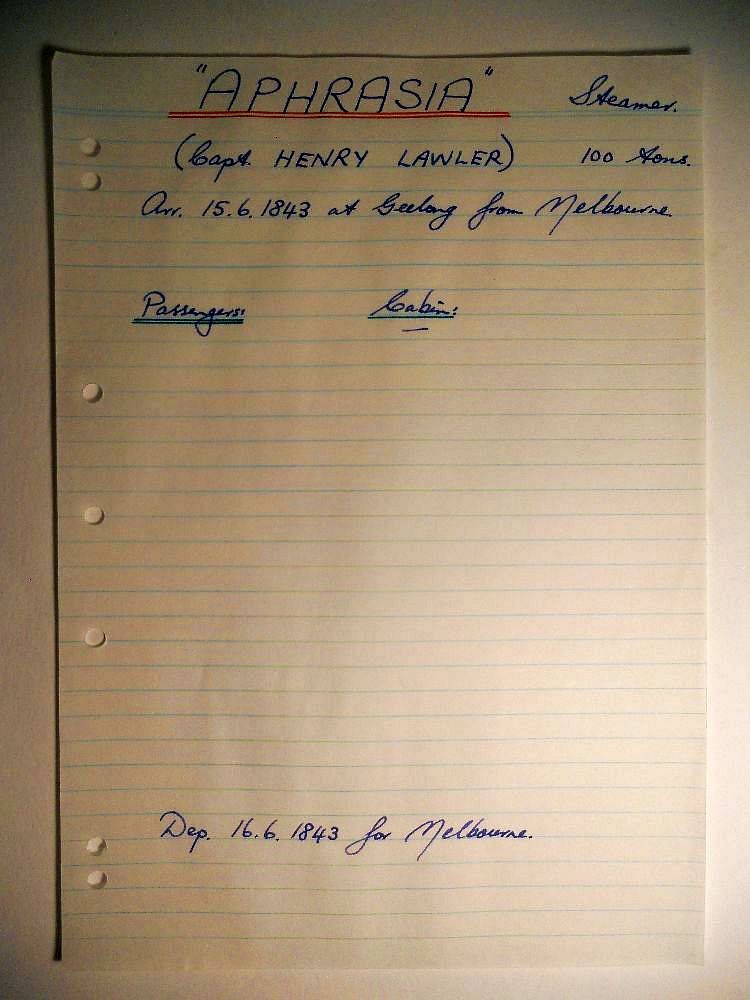 "APHRASIA" Steamer.
(Capt. HENRY LAWLER) 100 tons.
Arr. 15.6.1843 at Geelong from Melbourne.
Passengers: Cabin:
Dep. 16.6.1843 for Melbourne.